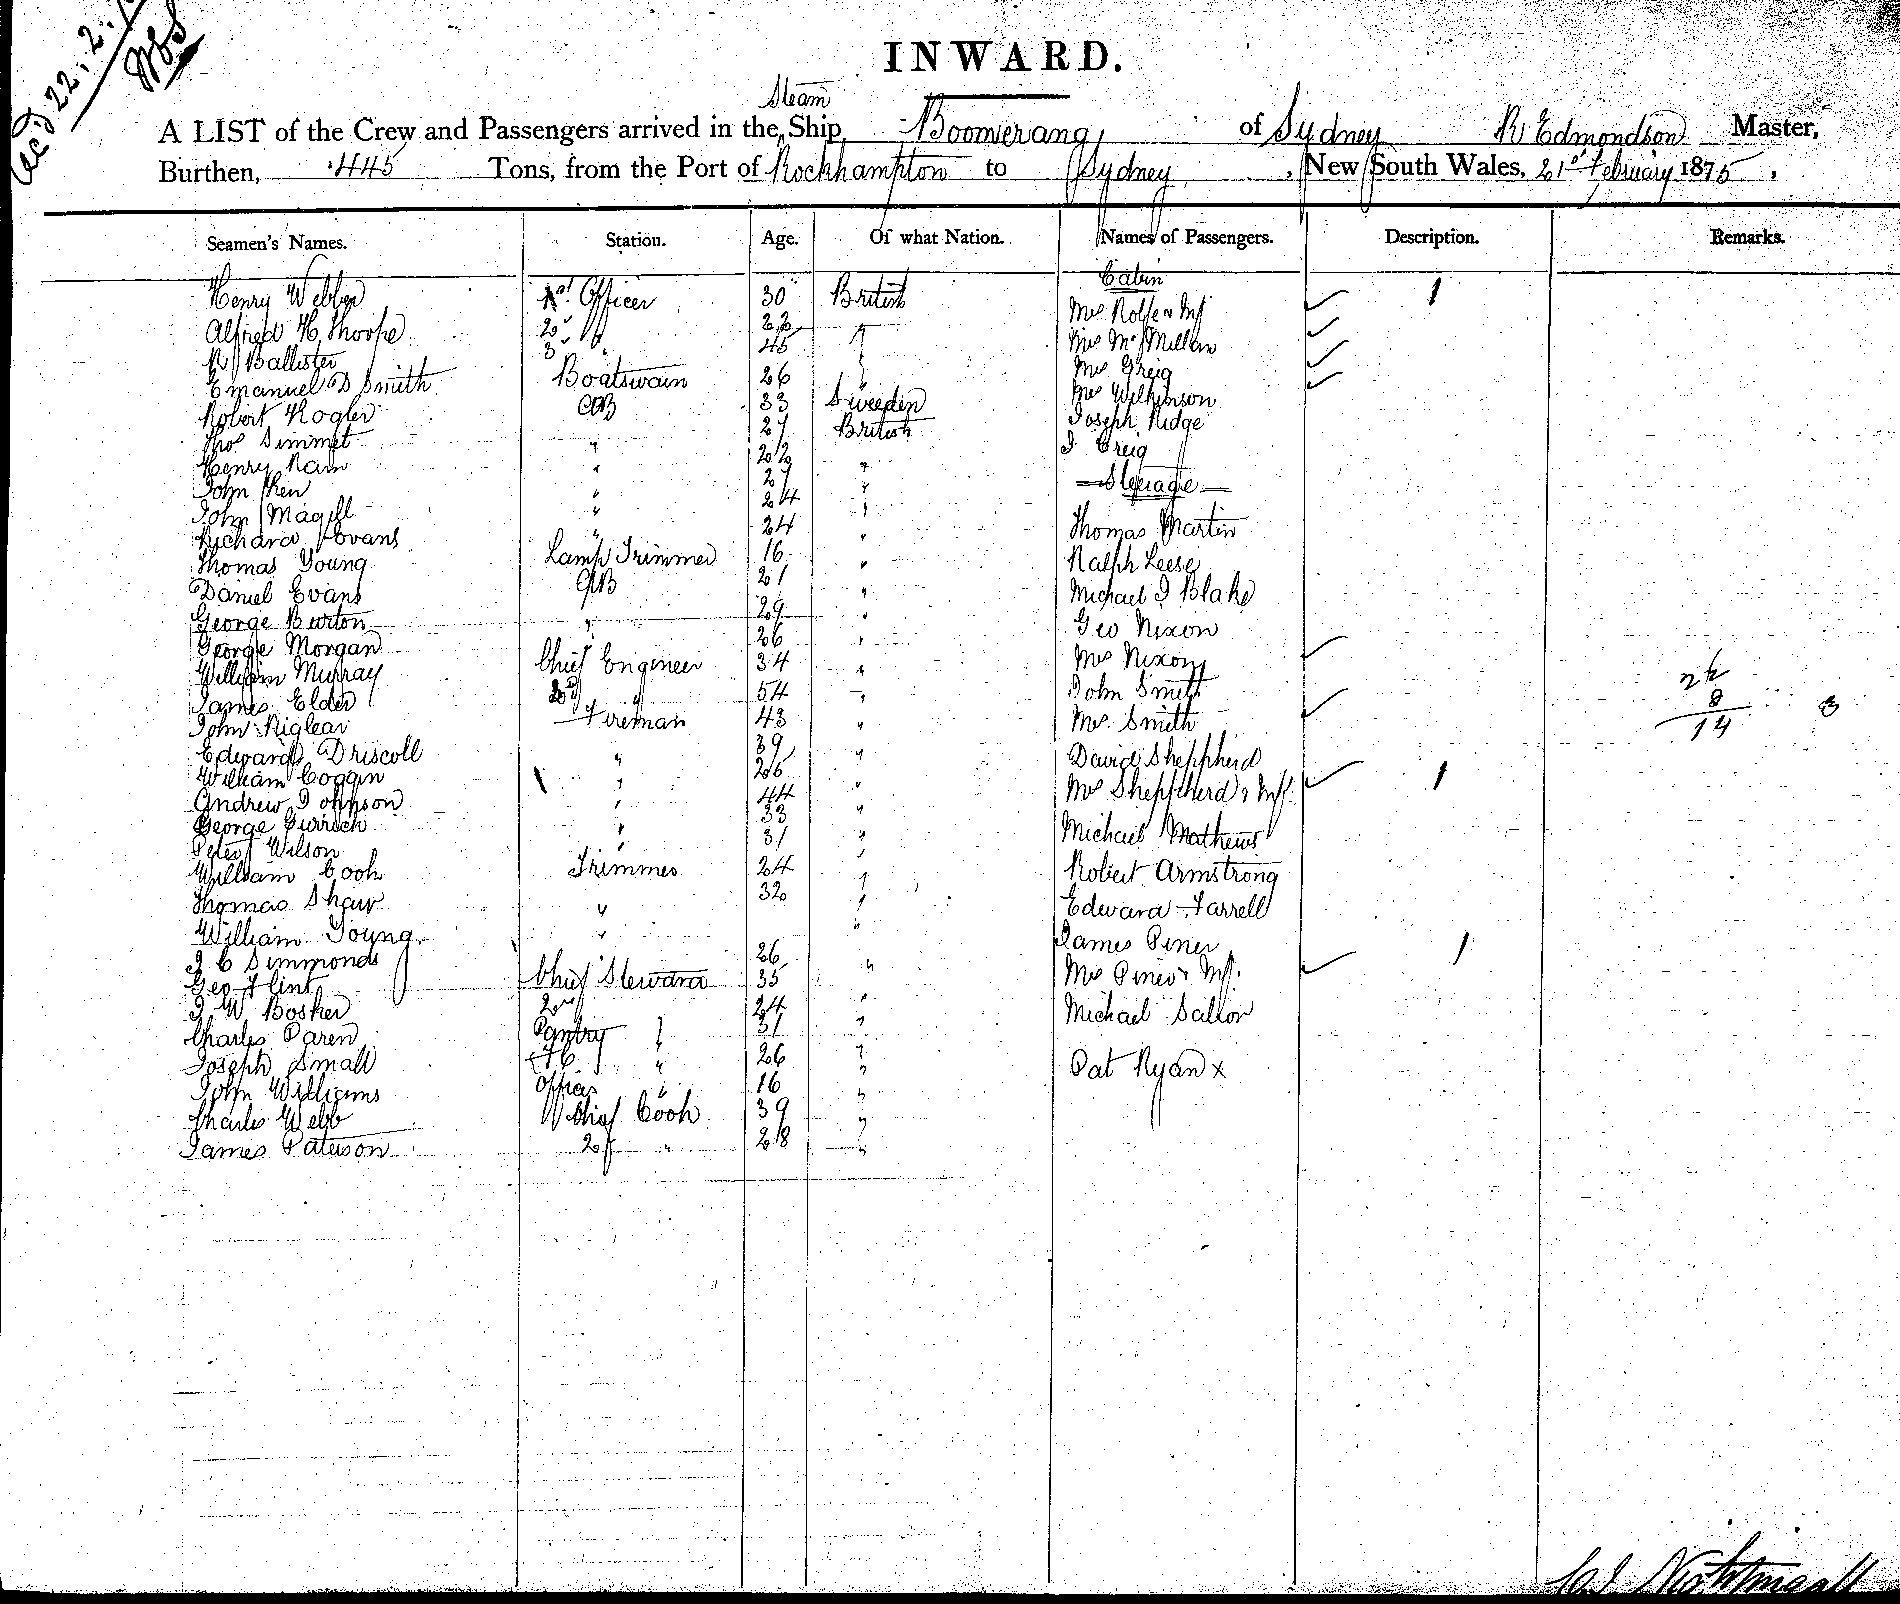 Rec'd 22.2.
INWARD.
Steam
A LIST of the Crew and Passengers arrived in the Ship, Boomerang of Sydney R Edmondson Master,
Burthen, 445 Tons, from the Port of Rockhampton to Sydney, New South Wales, 21st February 1875.
Seamen's Names. Station. Age. Of what Nation. Names of Passengers. Description. Remarks.
Cabin
Henry Webber 1st Officer 30 British Mrs Rolfe & Inf 1
Alfred H Thorpe 2nd " 22 " Mrs McMillan
R Ballister 3 " 45 " Mrs Greig
Emanuel D Smith Boatswain 26 " Mrs Wilkinson
Robert Kogler AB 33 Sweeden Joseph Ridge
Thos Simmet " 27 British J Greig
Henry Nain " 22 "
John " 27 " Steerage
John Magill " 24 "
Richard Evans " 24 " Thomas Martin
Thomas Young Lamp Trimmer 16 " Ralph Leese
Daniel Evans AB 21 " Michael J Blake
George Burton " 29 " Geo Nixon
George Morgan 26 " Mrs Nixon
William Murray Chief Engineer 34 " John Smith
James Elder 2d " 54 " Mrs Smith
John Riglear Fireman 43 " David Sheppherd
Edward Driscoll " 39 " Mrs Sheppherd & Inf. 1
William Coggin " 26 " Michael Mathews
Andrew Johnson " 44 " Robert Armstrong
George " 33 " Edward Farrell
Peter Wilson " 31 " James Piner
William Cook Trimmer 24 " Mrs Piner & Inf. 1
Thomas Shaw " 32 " Michael Sallor
William Young " " Pat Ryan x
J C Simmonds 26 "
Geo Flint Chief Steward 35 "
J W Bosher 2nd 24 "
Charles Paren Pantry " 31 "
Joseph Small FC " 26 "
John Williams Officers " 16 "
Charles Webb Chief Cook 39 "
James Paterson 2d " 28 "
22
8
14
3